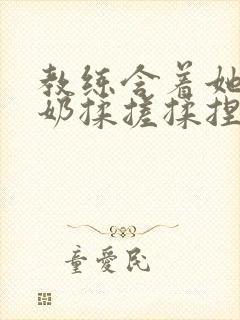 教练含着她
奶揉搓揉捏
童爱民